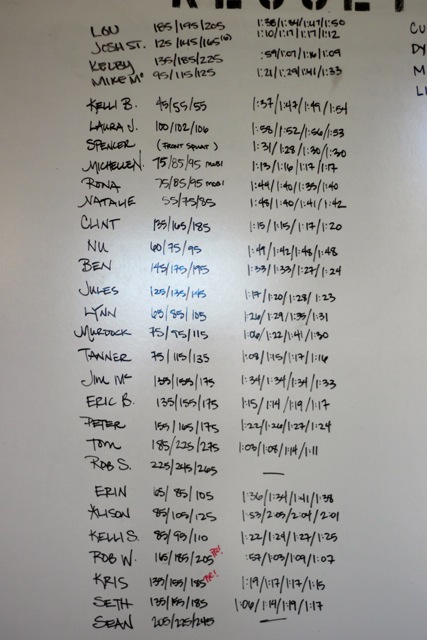 LOU 185/195/205 1:38/1:34/1:47/1:50
JOSH ST. 125/145/165(6) 1:10/1:17/1:17/1:12
KELBY 135/185/225 :59/1:07/1:16/1:09
MIKE Mc 95/115/125 1:21/1:29/1:41/1:33
KELLI B. 45/55/55 1:37/1:47/1:49/1:54
LAURA J. 100/102/106 1:58/1:52/1:56/1:53
SPENCER (FRONT SQUAT) 1:31/1:28/1:30/1:30
MICHELLE N. 75/85/95 1:13/1:16/1:17/1:17
RONA 75/85/95 1:44/1:40/1:35/1:40
NATALIE 55/75/85 1:48/1:40/1:41/1:42
CLINT 135/165/185 1:15/1:15/1:17/1:20
NU 60/75/95 1:49/1:42/1:48/1:48
BEN 145/175/195 1:33/1:33/1:27/1:24
JULES 125/135/145 1:17/1:20/1:28/1:23
LYNN 65/85/105 1:26/1:29/1:35/1:31
MURDOCK 75/95/115 1:06/1:22/1:41/1:30
TANNER 75/115/135 1:08/1:15/1:17/1:16
JIM Mc 135/155/175 1:34/1:34/1:34/1:33
ERIC B. 135/155/175 1:15/1:14/1:19/1:17
PETER 155/165/175 1:22/1:26/1:27/1:24
TOM 185/225/275 1:03/1:08/1:14/1:11
ROB S. 225/245/265 —
ERIN 65/85/105 1:36/1:34/1:41/1:38
ALISON 85/105/125 1:53/2:05/2:04/2:01
KELLI S. 85/95/110 1:22/1:24/1:27/1:25
ROB W. 165/185/205 PR! :57/1:03/1:09/1:07
KRIS 135/155/185 PR! 1:19/1:17/1:17/1:15
SETH 135/155/185 1:06/1:19/1:19/1:17
SEAN 205/225/245 —
CU
DY
M
LI